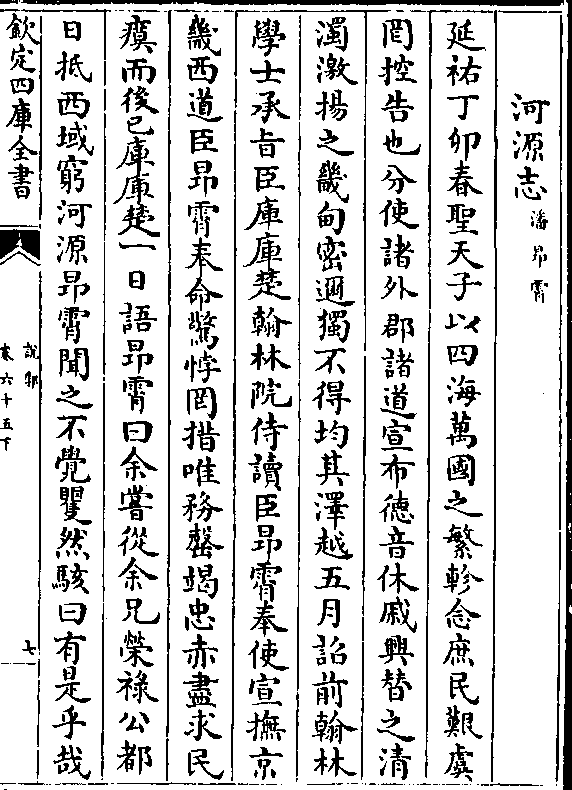 河源志 潘昂霄
延祐丁卯春聖天子以四海萬國之繁軫念庶民艱虞
罔控告也分使諸外郡諸道宣布德音休戚興替之清
濁激揚之畿甸密邇獨不得均其澤越五月詔前翰林
學士承㫖臣庫庫楚翰林院侍讀臣昂霄奉使宣撫京
畿西道臣昂霄奉命驚悸罔措唯務罄竭忠赤盡求民
瘼而後已庫庫楚一日語昂霄曰余嘗從余兄榮祿公都
日抵西域窮河源昂霄聞之不覺瞿然駭曰有是乎哉
欽定四庫全書
說郛
卷六十五下
七